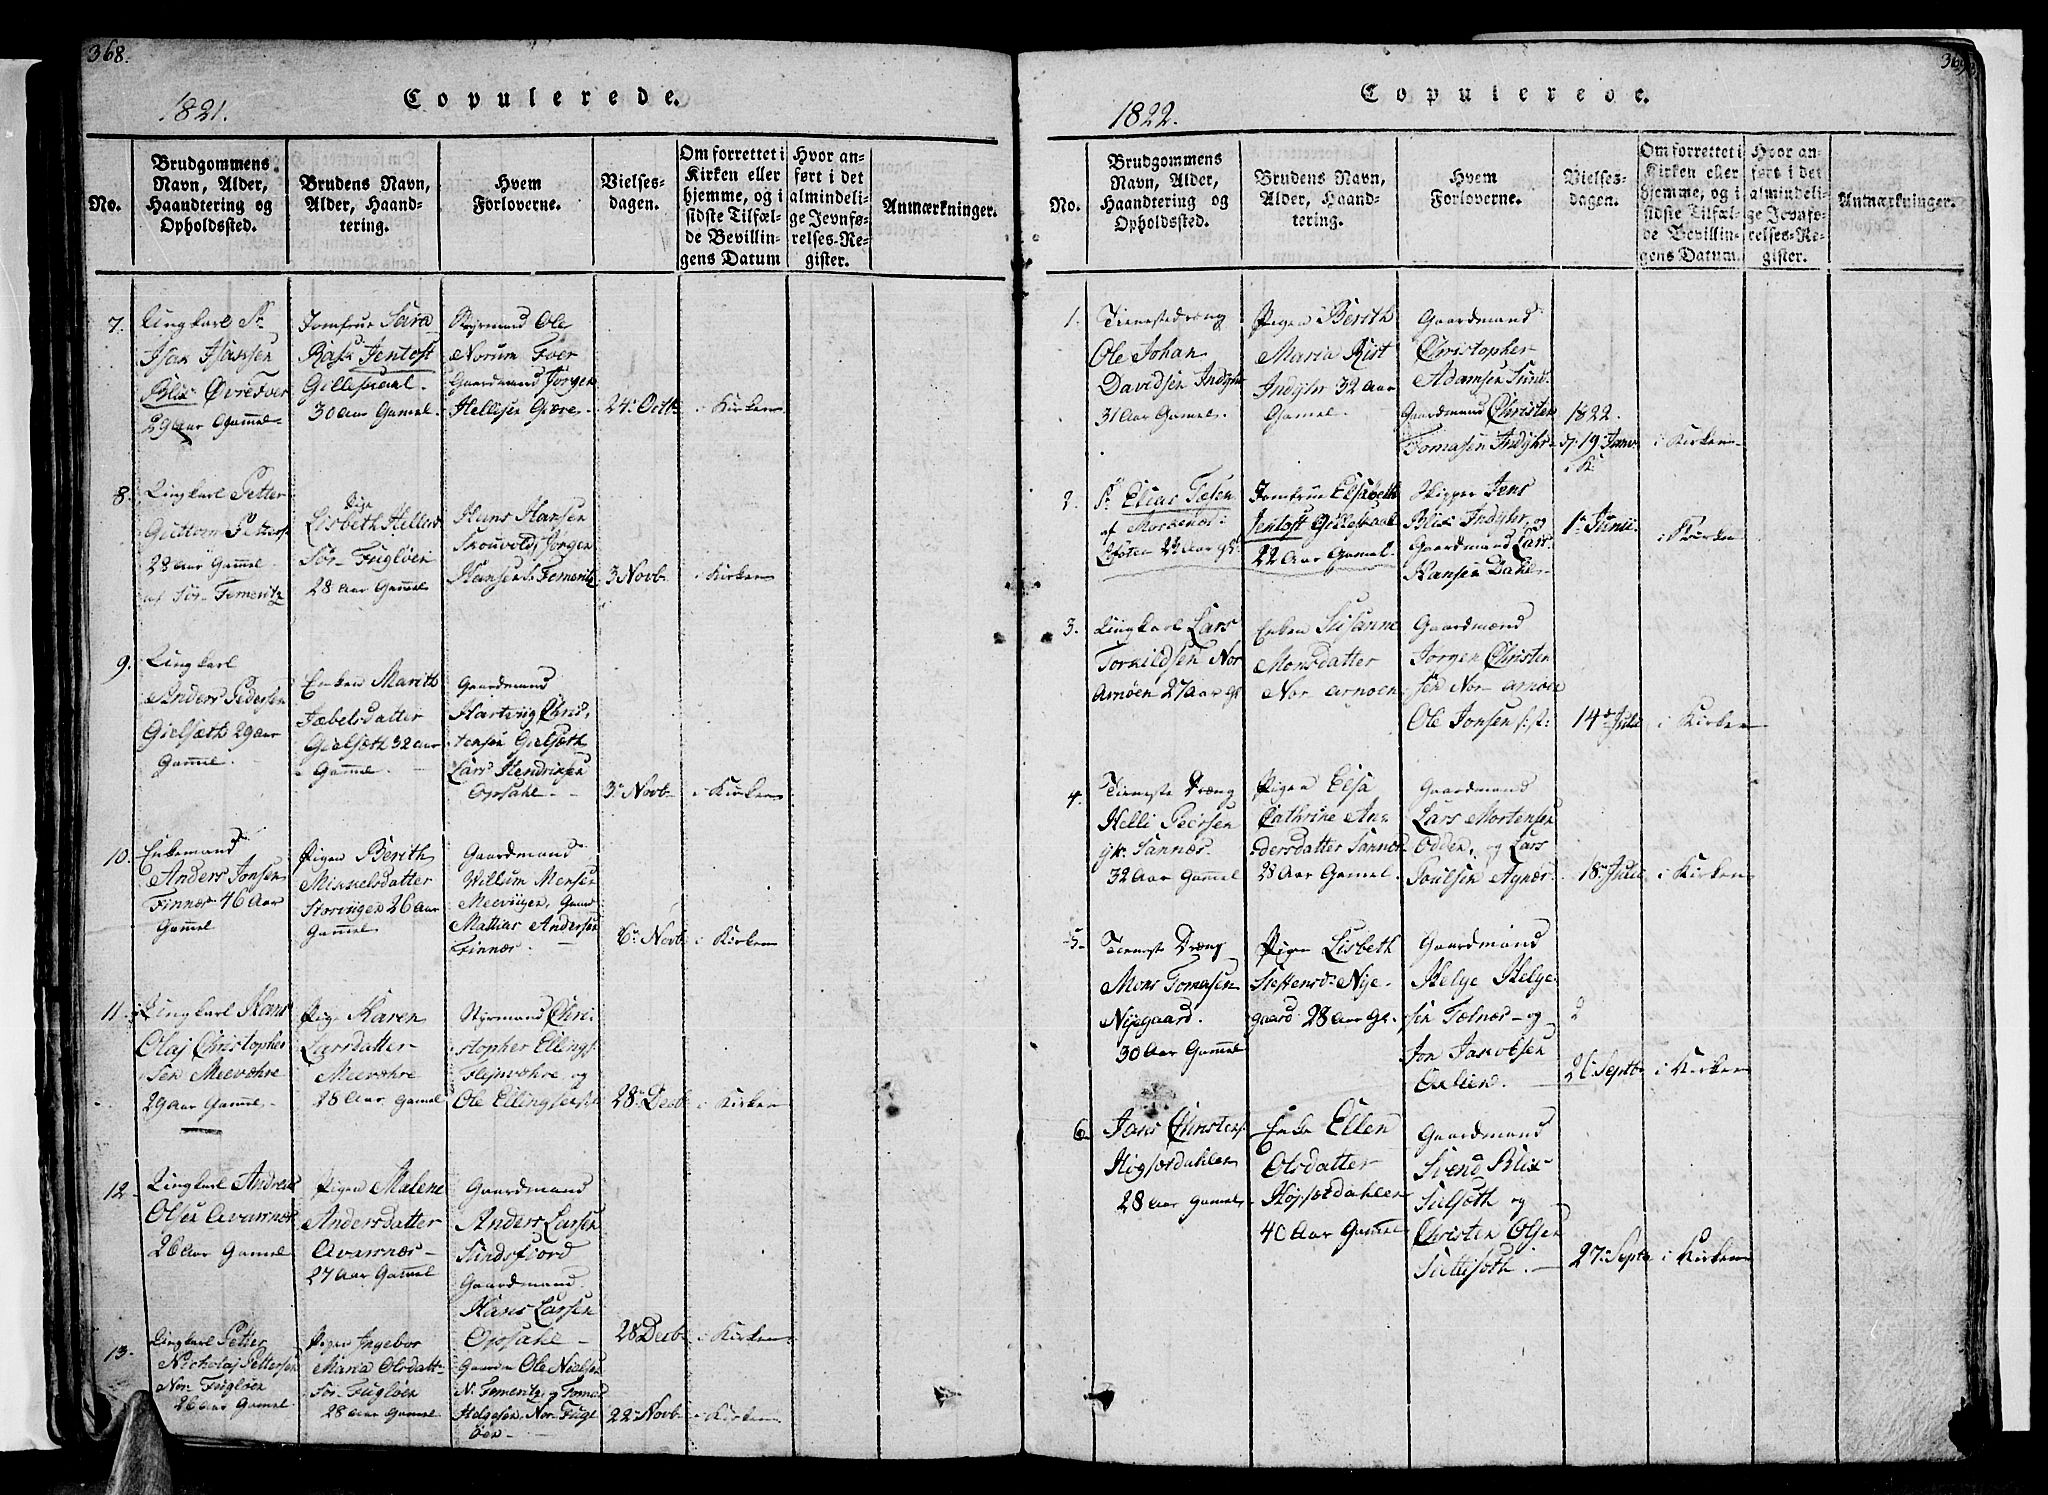 368.
1821.
Copulerede.
No.
Brudgommens
Navn, Alder,
Haandtering og
Opholdssted.
Brudens Navn,
Alder, Haand-
tering.
Hvem
Forloverne.
Vielses-
dagen.
Om forrettet i
Kirken eller
hjemme, og i
sidste Tilfæl-
de Bevillin-
gens Datum
Hvor an-
ført i det
almindeli-
ge Jevnfø-
relses-Re-
gister.
Anmærkninger.
7.
Ungkarl Sr
Hansen
Blix Øvre Fver
29 aar Gam̅el
Jomfrue Sara
Rask Jentoft
Gilleskaal.
30 aar Gamel.
Styrmand Ole
Norum Fver
Gaardmand Jørgen
Hellisen Giære
24 Octb
i Kirken
8.
Ungkarl Petter
Guttorm Peters
23 aar Gam̅el
af Sør Fomeritz
Pige
Lisbeth Hellesd
Sør Fugløen
28 aar Gam̅el
Hans Hansen
Skouvold, Jørgen
Hansen S. Fomeritz
3 Novb
i Kirken
9.
Ungkarl
Anders Pedersen
Gielsæth 29 aar
Gam̅el
Enken Marith
Jæbelsdatter
Gielsæth 32 aar
Gam̅el
Gaardmand
Hartvig Chris
tensen Gielsæth
Lars Hendriksen
Opsahl
3 Novb
i Kirken
10.
Enkemand
Anders Jonsen
Finnes 46 Aar
Gam̅el
Pigen Berith
Mikkelsdatter
Storvigen 26 aar
Gam̅el
Gaardmand
Willum Monsen
Meevigen, Gaard
Mathias Andersen
Finnæs
6 Novb
i Kirken
11.
Ungkarl Hans
Olaj Christopher
sen Meevæhre
29 aar Gam̅el
Pige Karen
Larsdatter
Meevæhre
28 Aar Gamel
Styrmand Chri
stopher Ellings
Flejnvæhre og
Ole Ellingsen
28 Decb
i Kirken
12
Ungkarl Andreas
Olsen Avarnæs
26 aar Gam̅el
Pigen Malene
Andersdatter
Avarnæs
27 Aar Gam̅el
Gaardmand
Anders Larsen
Sundsfjord
Gaardmand
Hans Larsen
Opsahl
28 Decb
i Kirken
13.
Ungkarl Petter
Nicholaj Pettersen
Nor Fugløen
26 aar Gamel
Pigen Ingebor
Maria Olsdatt
Sør Fugløen
28 aar Gamel
Gaardm Ole Nielsen
N. Fomeritz, og Tomas
Helgesen, Nor Fugl
øen
22 Novb
i Kirken
369
1822.
Copulerede.
No.
Brudgommens
Navn, Alder,
Haandtering og
Opholdssted.
Brudens Navn,
Alder, Haand-
tering.
Hvem
Forloverne.
Vielses-
dagen.
Om forrettet i
Kirken eller
hjemme, og i
sidste Tilfæl-
de Bevillin-
gens Datum.
Hvor an-
ført i det
almindeli-
ge Jevnfø-
relses-Re-
gister.
Antmærkninger.
1.
Tienestedreng
Ole Johan
Davidsen Indyhr
31 Aar Gamel.
Pigen Berith
Maria Rist
Indyhr 32 aar
Gamel.
Gaardmand
Christopher
Adamsen Sund
Gaardmand Christen
Tomasen Indyhr
1822.
d 19 Janv
i Kirken
2.
Sr Elias Falch
Lofoten 23 Aar gl
Jomfrue Elsabeth
Jentoft Gilleskaal
22 Aar Gamel.
Skipper Jens
Blix Indyhr, og
Gaardmand Lars
Hansen Dahl
1 Junii
i Kirken
3.
Ungkarl Lars
Torkildsen Nor
Arnøen 27 Aar gl
Enken Susanne
Monsdatter
Nor Arnøen
Gaardmænd
Jørgen Christen
sen Nor arnøen
Ole Jonsen s: st:
14 Juli
i Kirken
4.
Tieneste Dreng
Helli Pedrsen
Sannæs.
32 Aar Gam̅el
Pigen Elsa
Cathrine An
dersdatter Sannæs
28 Aar Gamel.
Gaardmand
Lars Mortensen
Odden, og Lars
Poulsen Agnæs
18 Juli
i Kirken
5
Tieneste Dreng
Mons Tomasen
Nÿegaard.
30 Aar Gam̅el
Pigen Lisbeth
Steffensd Nÿe
gaard 28 Aar Gl.
Gaardmand
Helge Helge
sen Fælnæs og
Jon Jakobsen
26 Septb
i Kirken
6
Jens Christens
28 Aar Gamel
Enke Ellen
Olsdatter
40 Aar Gam̅el
Gaardmand
Svend Blix
og
Christen Olsen
27 Septb
i Kirken